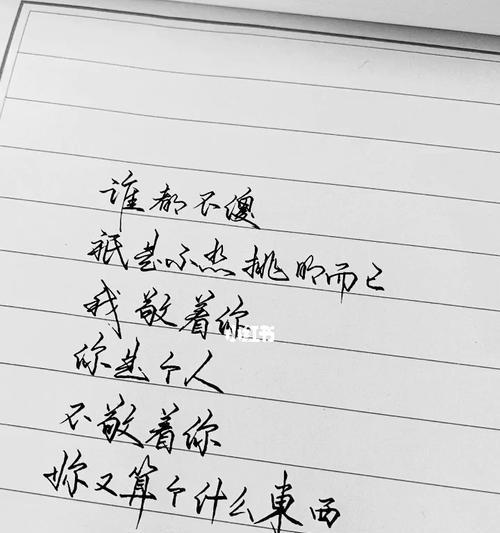 谁都不傻
祇是不想挑明而已
我敬着你
小红书
你是个人
不敬着你
你又算个什么東西